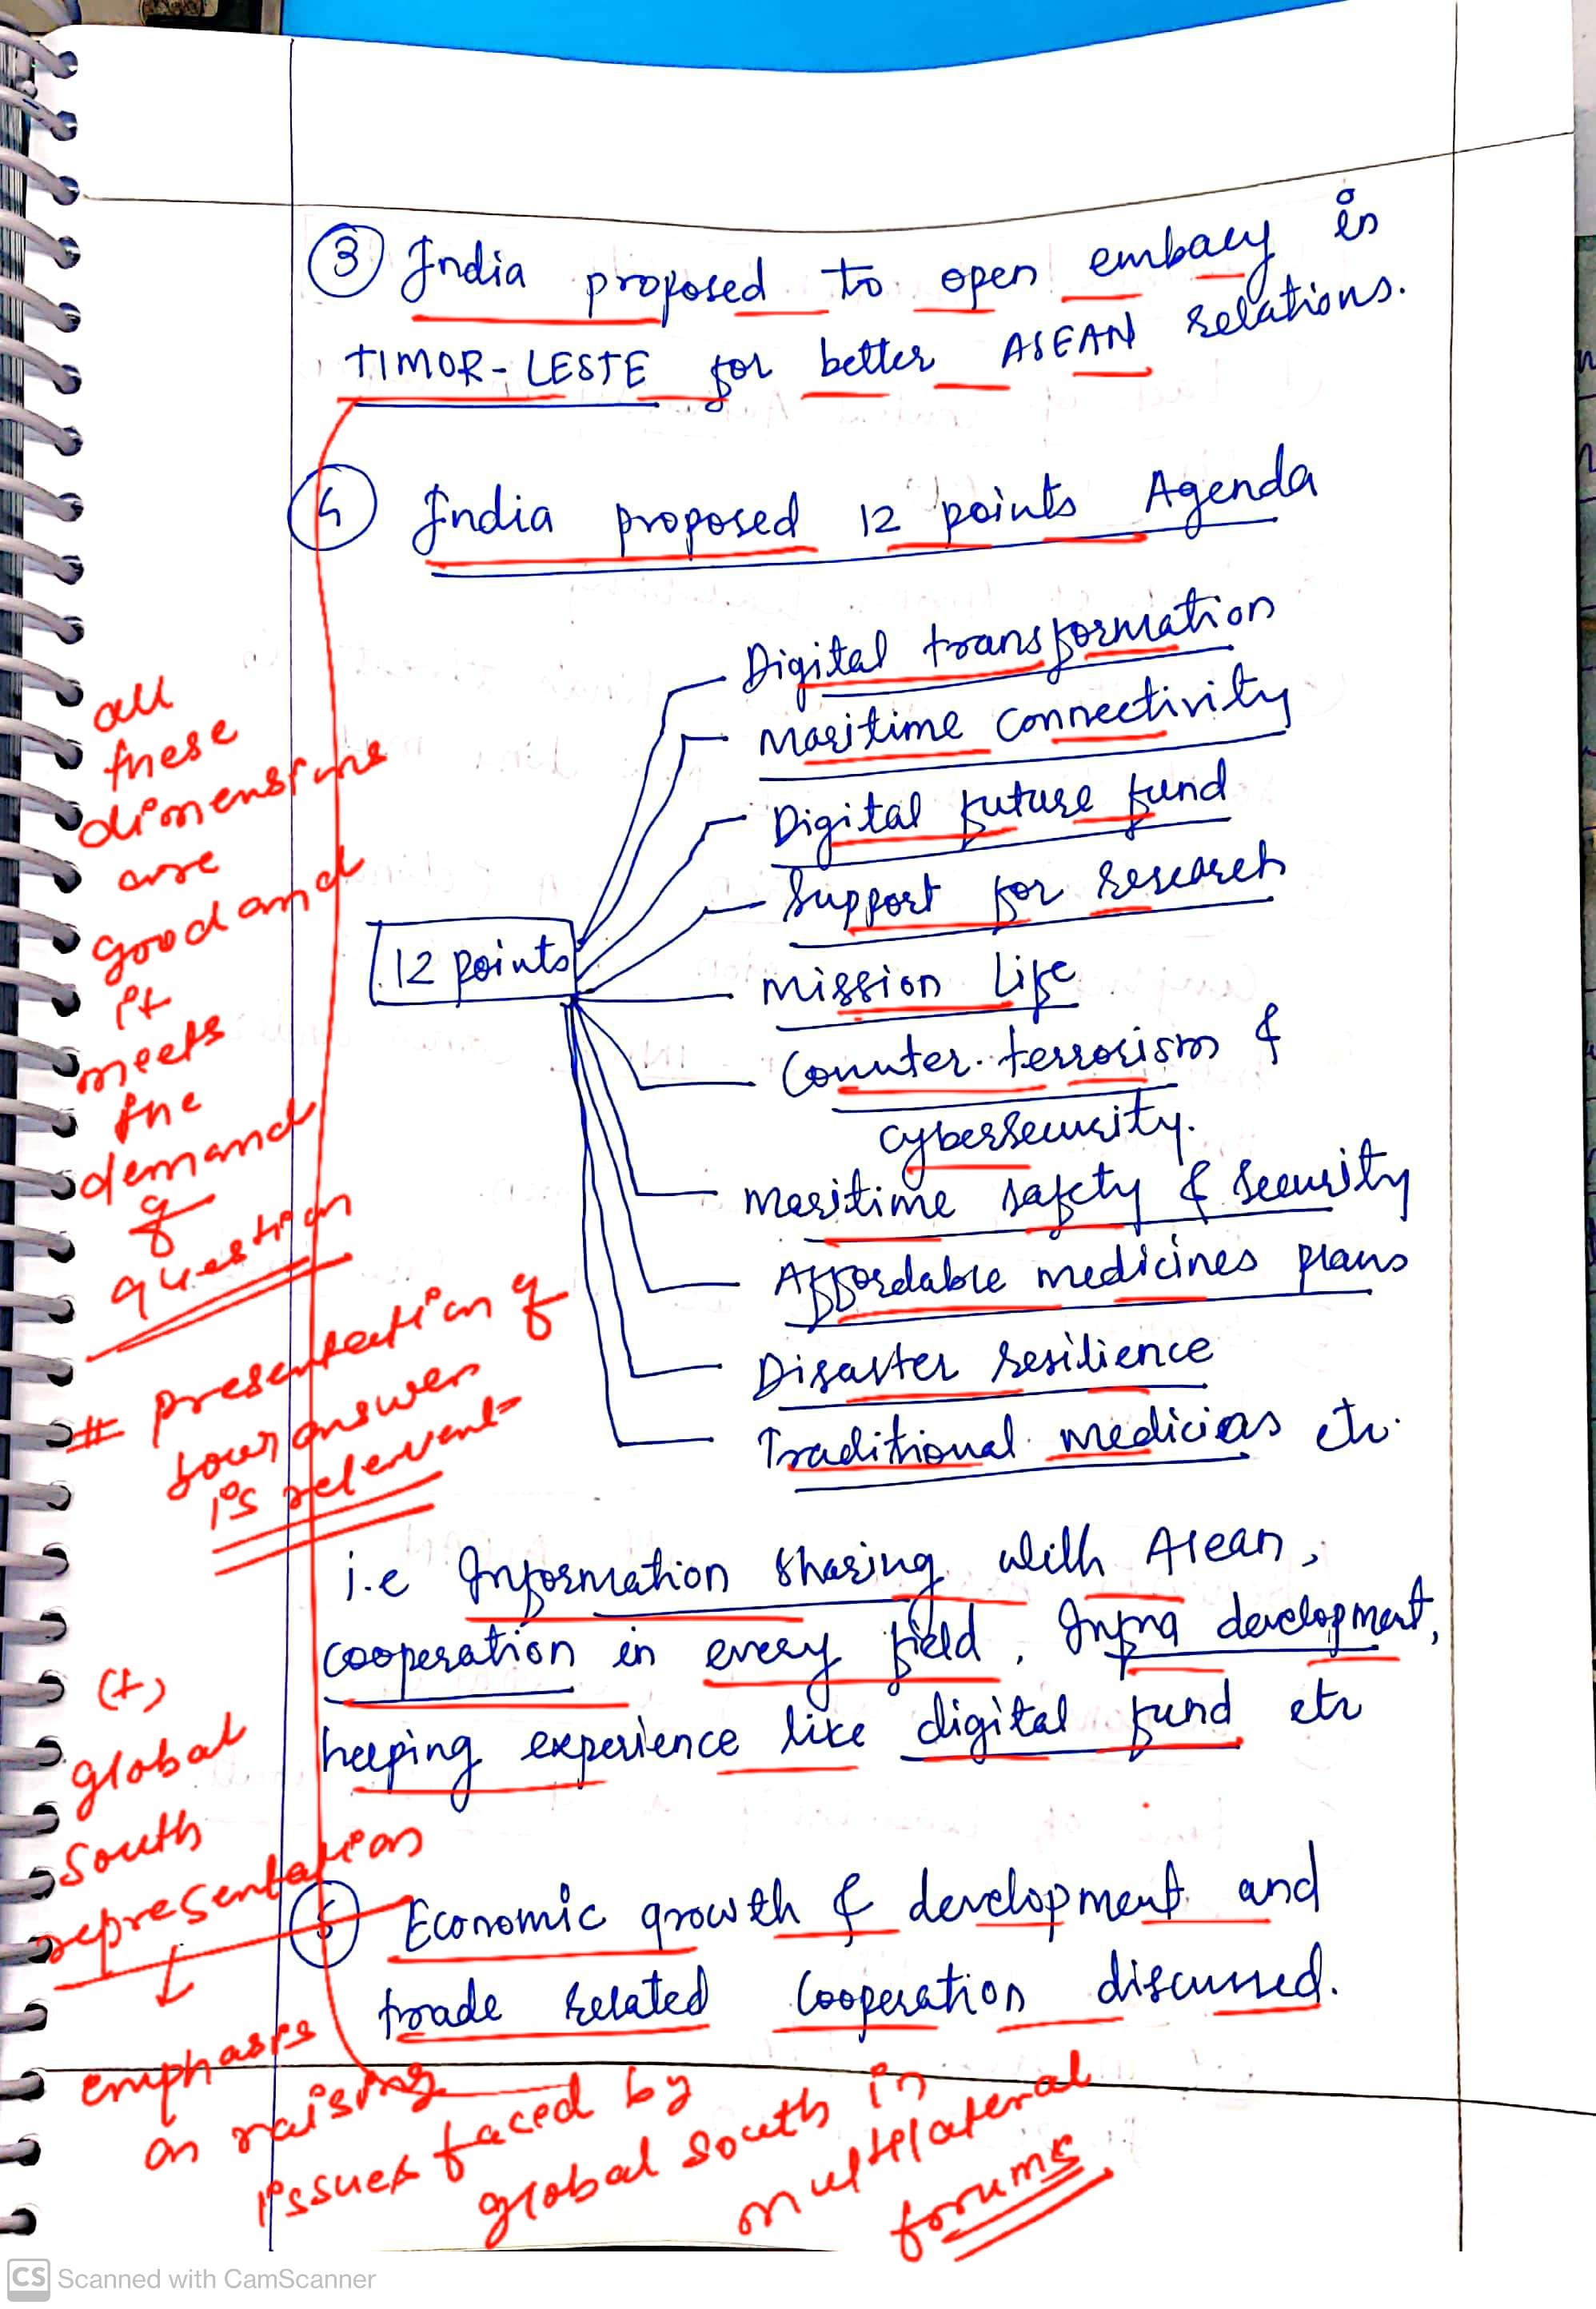 ③ India proposed to open embacy in
TIMOR-LESTE for better ASEAN relations.
④ India proposed 12 points Agenda
12 points
Digital transformation
Maritime Connectivity
Digital future fund
Support for research
Mission Life
Counter-terrorism &
cybersecurity.
Maritime safety & Security
Affordable medicines plans
Disaster resilience
Traditional medicies etc.
i.e Information sharing with Asean,
cooperation in every field, Infra development,
helping experience like digital fund etc
⑤ Economic growth & development and
trade related Cooperation discussed.
all
these
dimensions
are
good and
it
meets
the
demand
of
question
# presentation of
your answer
is relevent
(+)
global
South
representation
↓
emphasis
on raising
issues faced by
global south in
multilateral
forums
CS Scanned with CamScanner